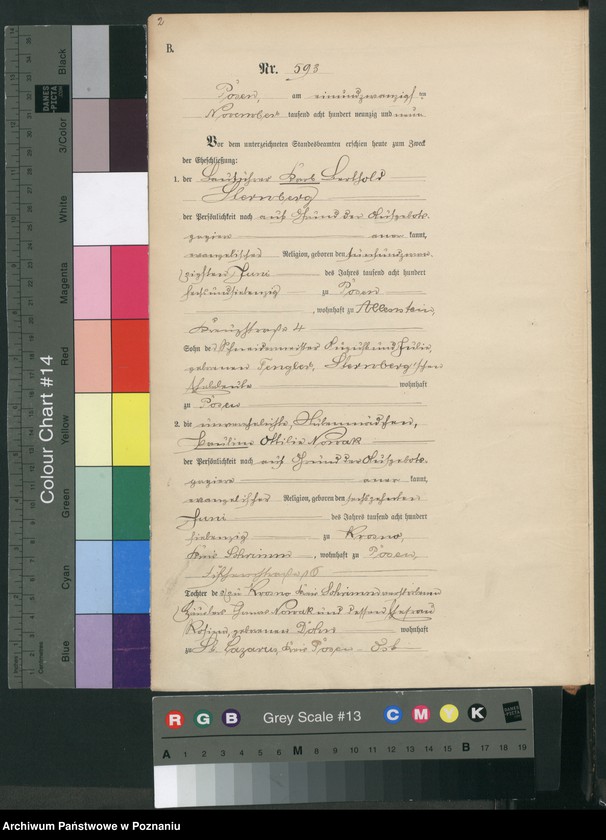 2
B.
Nr. 598
Posen, am einundzwanzigsten
November tausend acht hundert neunzig und neun
Vor dem unterzeichneten Standesbeamten erschien heute zum Zweck
der Eheschließung:
1. der Karl Berthold
Sternberg
der Persönlichkeit nach auf Grund der Aufgebots-
papiere anerkannt,
evangelischer Religion, geboren den fünfundzwan-
zigsten Juni des Jahres tausend acht hundert
sechsundsiebenzig zu Posen
, wohnhaft zu Allenstein,
Kreuzstraße 4
Sohn des Schneidermeister August und Julie,
geborenen Tengler, Sternberg'schen
Eheleute wohnhaft
zu Posen
2. die unverehelichte Stubenmädchen,
Pauline Ottilie Nowak
der Persönlichkeit nach auf Grund der Aufgebots-
papiere anerkannt,
evangelischer Religion, geboren den sechszehnten
Juni des Jahres tausend acht hundert
siebenzig zu Krosno,
Kreis Schrimm, wohnhaft zu Posen,
Tochter des zu Krosno Kreis Schrimm verstorbenen
Häusler Nowak und dessen Ehefrau
Rosina geborenen Döhn wohnhaft
zu St. Lazarus, Kreis Posen - Ost
Colour Chart #14
Black
3/Color
White
Magenta
Red
Yellow
Green
Cyan
Blue
DANES
PICTA
.COM
R G B Grey Scale #13 C M Y K
A 1 2 3 4 5 6 M 8 9 10 11 12 13 14 15 B 17 18 19
Archiwum Państwowe w Poznaniu